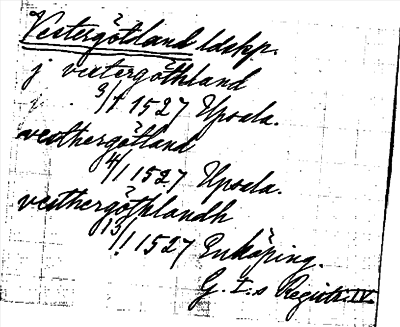 Vestergötland ldskp.
j vestergöthland
3/1 1527 Upsala.
vesthergötland
4/1 1527 Upsala.
vesthergöthlandh
13/1 1527 Enköping.
G. I.s Registr. IV.